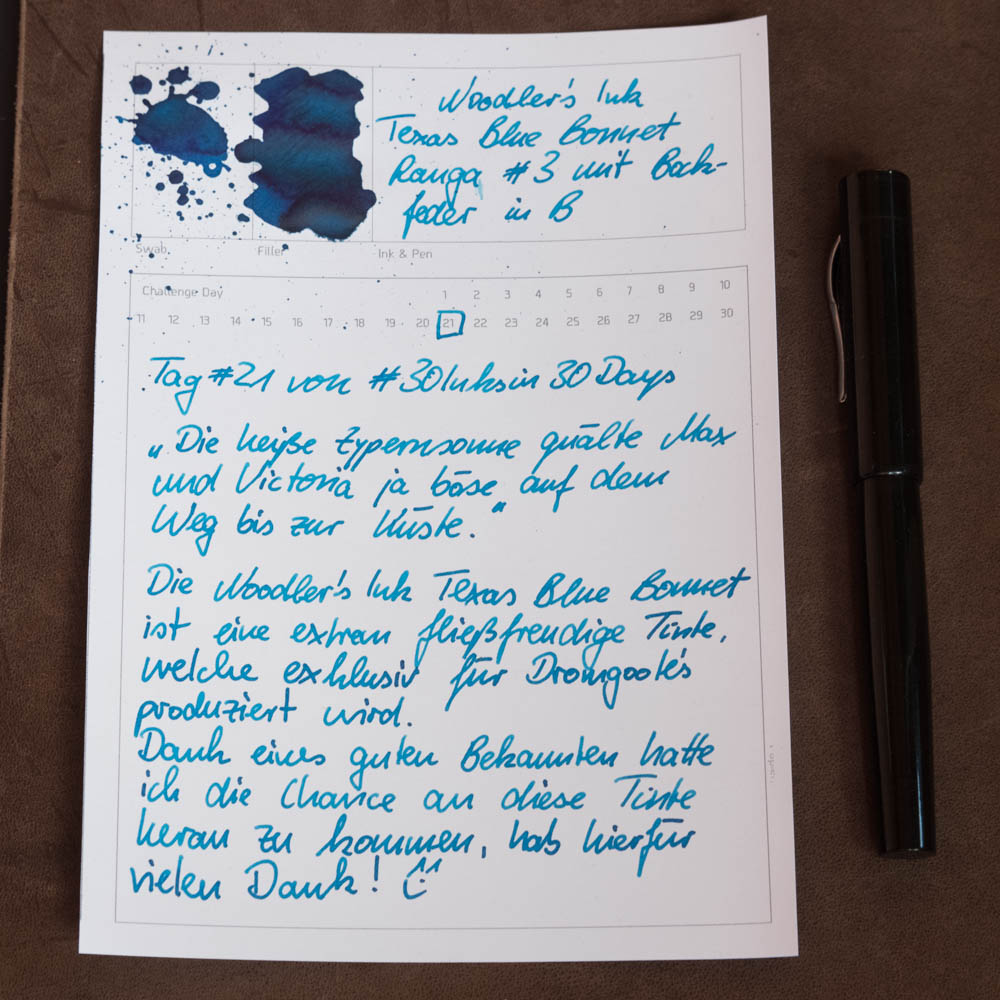 Noodler's Ink
Texas Blue Bonnet
Ranga #3 mit Bock-
feder in B
Swab
Filler
Ink & Pen
Challenge Day 1 2 3 4 5 6 7 8 9 10
11 12 13 14 15 16 17 18 19 20 21 22 23 24 25 26 27 28 29 30
Tag #21 von #30Inksin30Days
„Die heiße Zypernsonne quälte Max
und Victoria ja böse auf dem
Weg bis zur Küste.“
Die Noodler's Ink Texas Blue Bonnet
ist eine extrem fließfreudige Tinte,
welche exklusiv für Dromgoole's
produziert wird.
Dank eines guten Bekannten hatte
ich die Chance an diese Tinte
heran zu kommen, hab hierfür
vielen Dank!